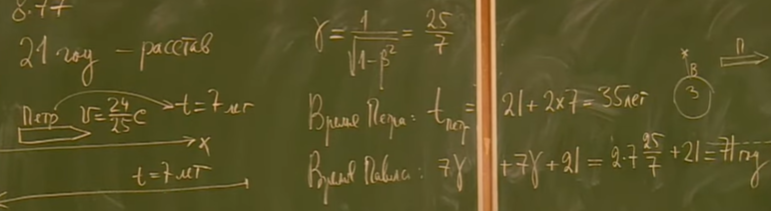 8.77
21 году - расстав
Петр v = 24/25 c t = 7 лет
x
t = 7 лет
γ = 1/√(1-β²) = 25/7
Время Петра: tпет = 21 + 2x7 = 35 лет
Время Павла: 7γ + 7γ + 21 = 2·7 25/7 + 21 = 71 год
В
З
П